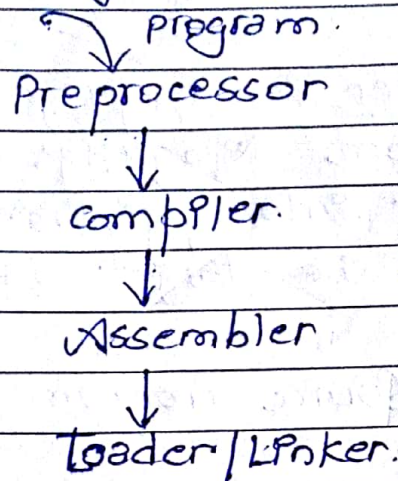 program.
Preprocessor
compiler.
Assembler
Loader/Linker.